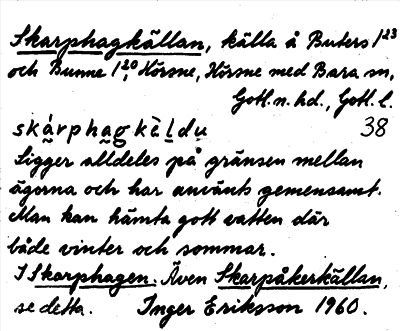 Skarphagkällan, källa å Buters 1²³
och Bunne 1²⁰, Hörsne, Hörsne med Bara sn,
Gotl. n. hd., Gotl. l.
skárphagkè̀ldu 38
Ligger alldeles på gränsen mellan
ägorna och har använts gemensamt.
Man kan hämta gott vatten där
både vinter och sommar.
I Skarphagen. Även Skarpåkerkällan,
se detta. Inger Eriksson 1960.